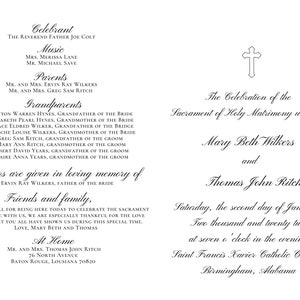 Celebrant
The Reverend Father Joe Colt
Music
Mrs. Merissa Lane
Mr. Michael Save
Parents
Mr. and Mrs. Ervin Ray Wilkers
Mr. and Mrs. Greg Sam Ritch
Grandparents
ton Warren Hynes, Grandfather of the Bride
abeth Pearl Hynes, Grandmother of the Bride
ace Eldred Wilker, Grandfather of the Bride
che Louise Wilkers, Grandmother of the Bride
Greg Sam Ritch, Grandfather of the Groom
Mary Ann Ritch, Grandmother of the Groom
obert David Years, Grandfather of the Groom
aire Anna Years, Grandmother of the Groom
s are given in loving memory of
Ervin Ray Wilkers, father of the bride
Friends and family,
all for being here today to celebrate the sacrament
with us, we are especially thankful for the love
t you all have shown us during this special time.
Love, Mary Beth and Thomas
At Home
Mr. and Mrs. Thomas John Ritch
76 North Avenue
Baton Rouge, Louisiana 70820
The Celebration of the
Sacrament of Holy Matrimony u
Mary Beth Wilkers
and
Thomas John Ritch
Saturday, the second day of Jan
Two thousand and twenty t
at seven o'clock in the evenin
Saint Francis Xavier Catholic C
Birmingham, Alabama